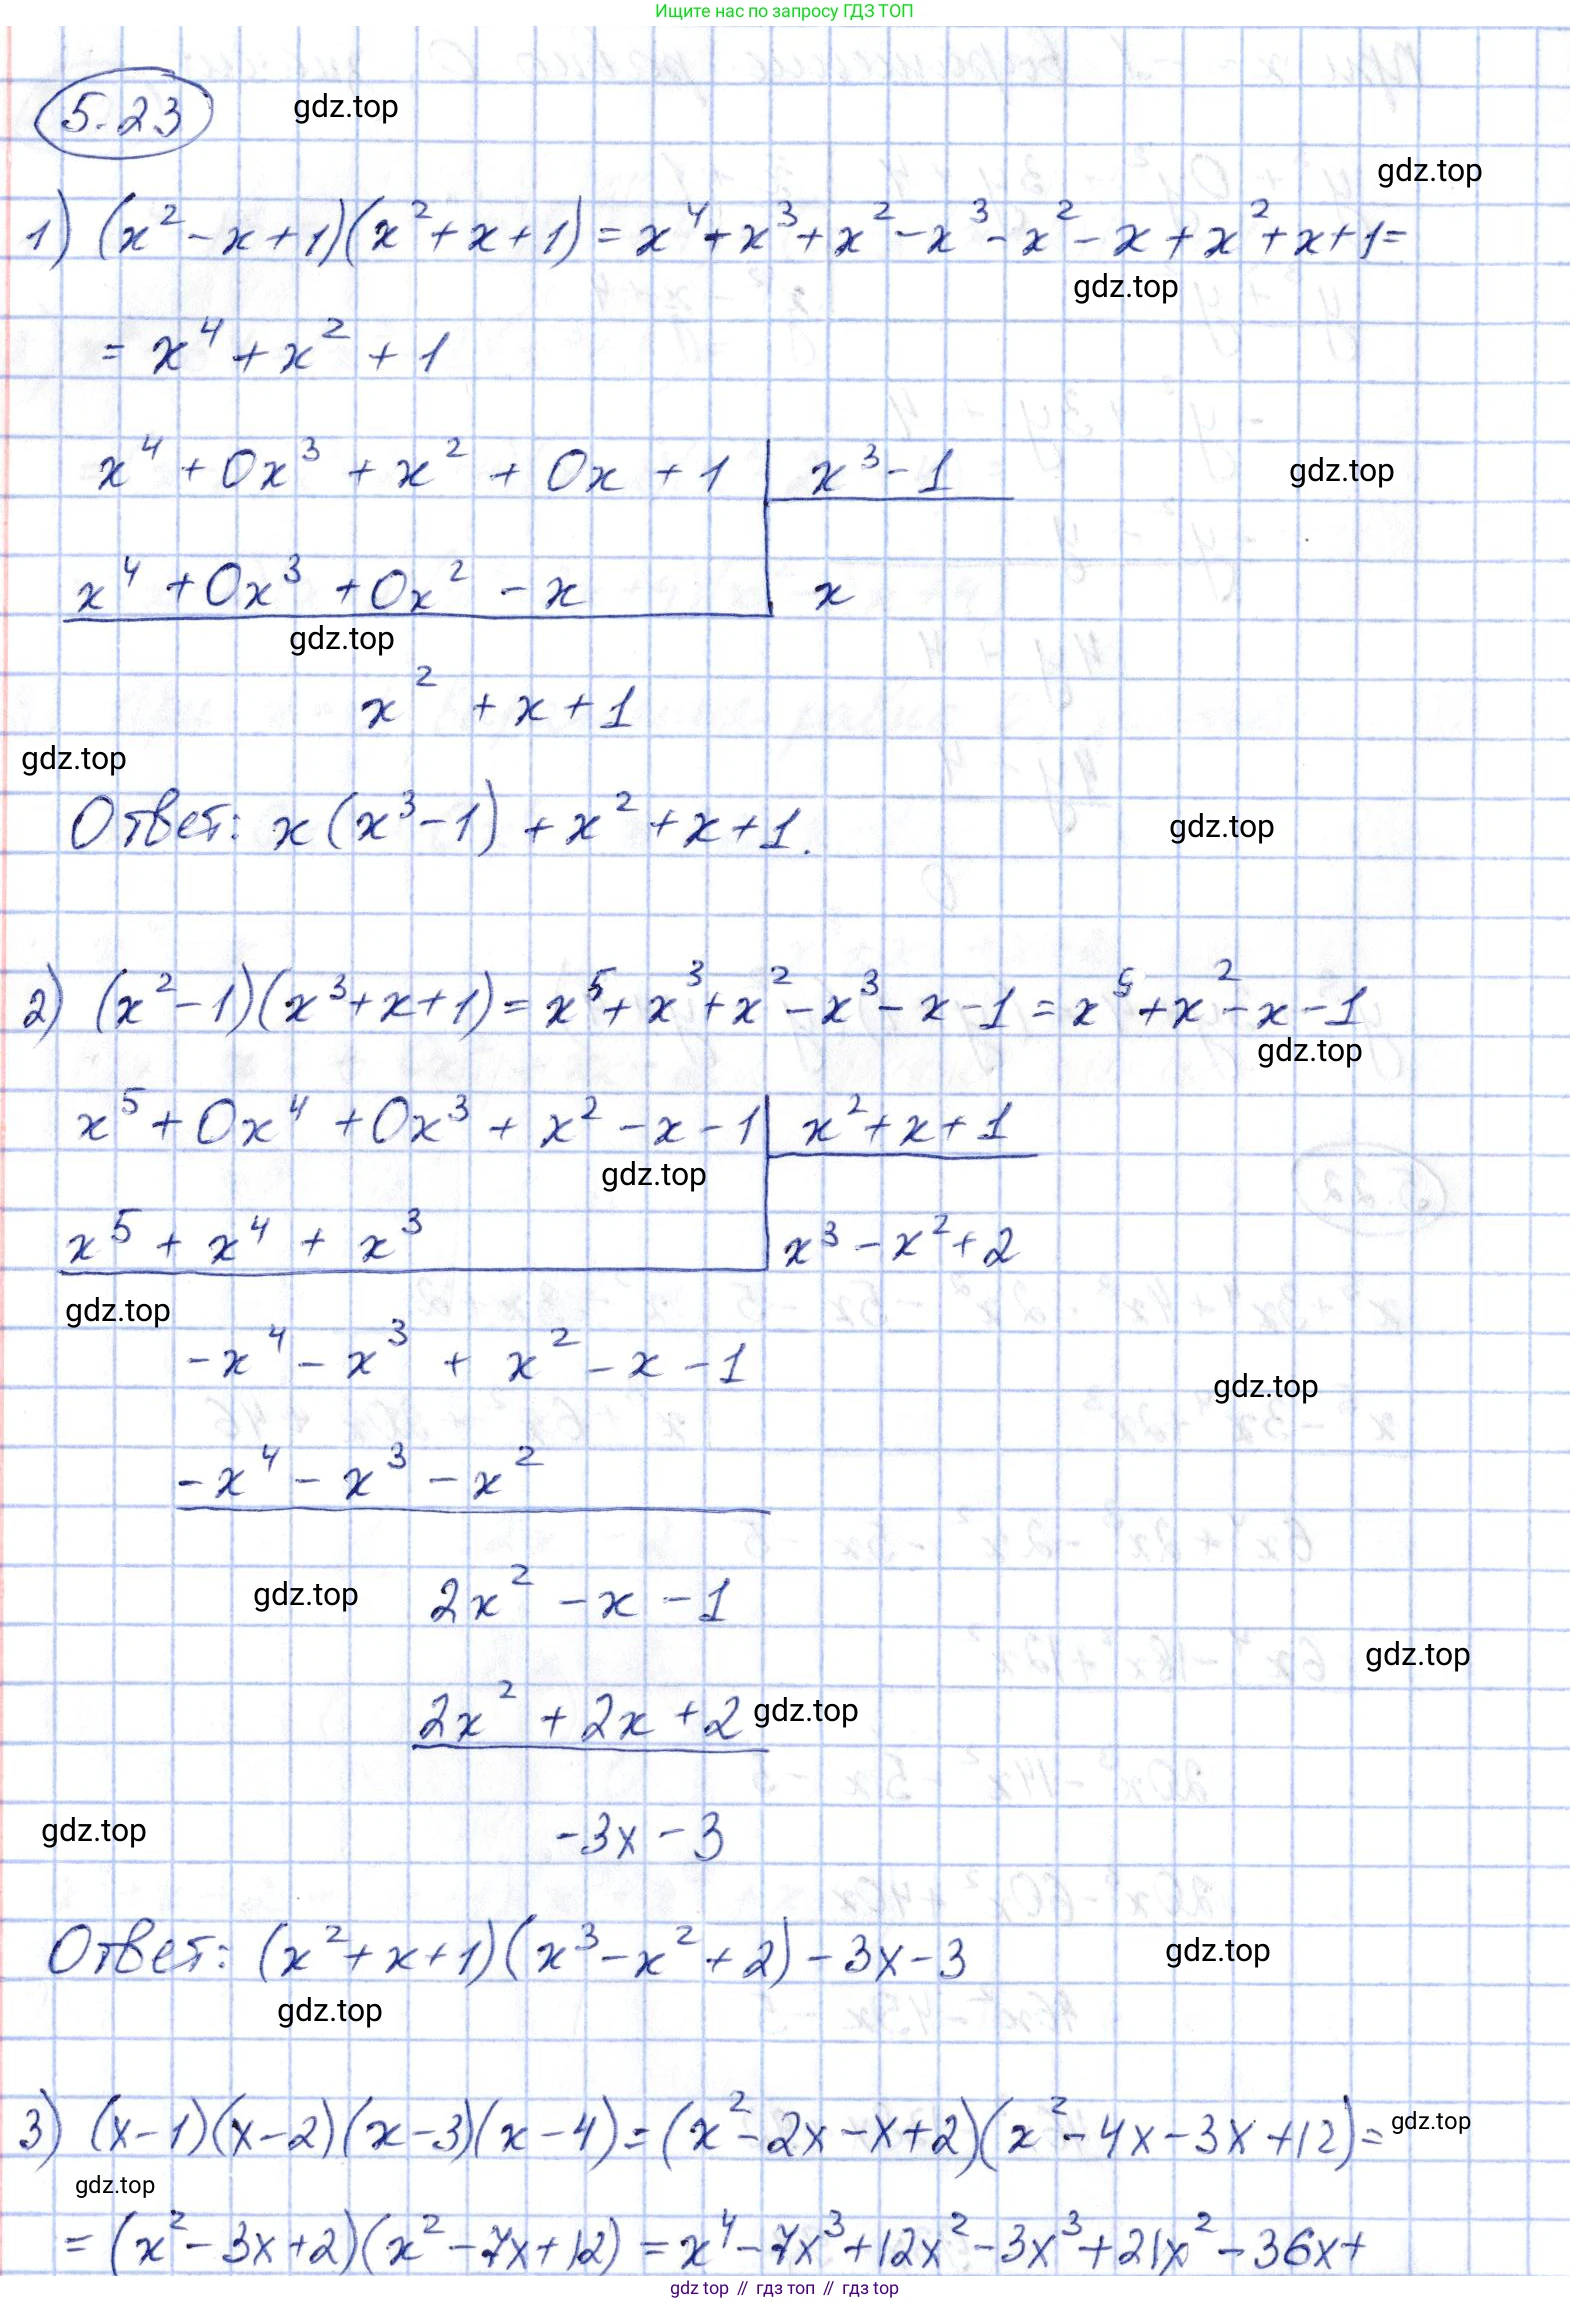 Ищите нас по запросу ГДЗ ТОП
5.23 gdz.top
gdz.top
1) (x² - x + 1)(x² + x + 1) = x⁴ + x³ + x² - x³ - x² - x + x² + x + 1 =
gdz.top
= x⁴ + x² + 1
x⁴ + 0x³ + x² + 0x + 1 | x³ - 1 gdz.top
x⁴ + 0x³ + 0x² - x | x
gdz.top
x² + x + 1
gdz.top
Ответ: x(x³ - 1) + x² + x + 1. gdz.top
2) (x² - 1)(x³ + x + 1) = x⁵ + x³ + x² - x³ - x - 1 = x⁵ + x² - x - 1
gdz.top
x⁵ + 0x⁴ + 0x³ + x² - x - 1 | x² + x + 1
gdz.top
x⁵ + x⁴ + x³ | x³ - x² + 2
gdz.top
-x⁴ - x³ + x² - x - 1
gdz.top
-x⁴ - x³ - x²
gdz.top 2x² - x - 1
gdz.top
2x² + 2x + 2 gdz.top
gdz.top -3x - 3
Ответ: (x² + x + 1)(x³ - x² + 2) - 3x - 3 gdz.top
gdz.top
3) (x - 1)(x - 2)(x - 3)(x - 4) = (x² - 2x - x + 2)(x² - 4x - 3x + 12) = gdz.top
gdz.top
= (x² - 3x + 2)(x² - 7x + 12) = x⁴ - 7x³ + 12x² - 3x³ + 21x² - 36x +
gdz top // гдз топ // гдз top